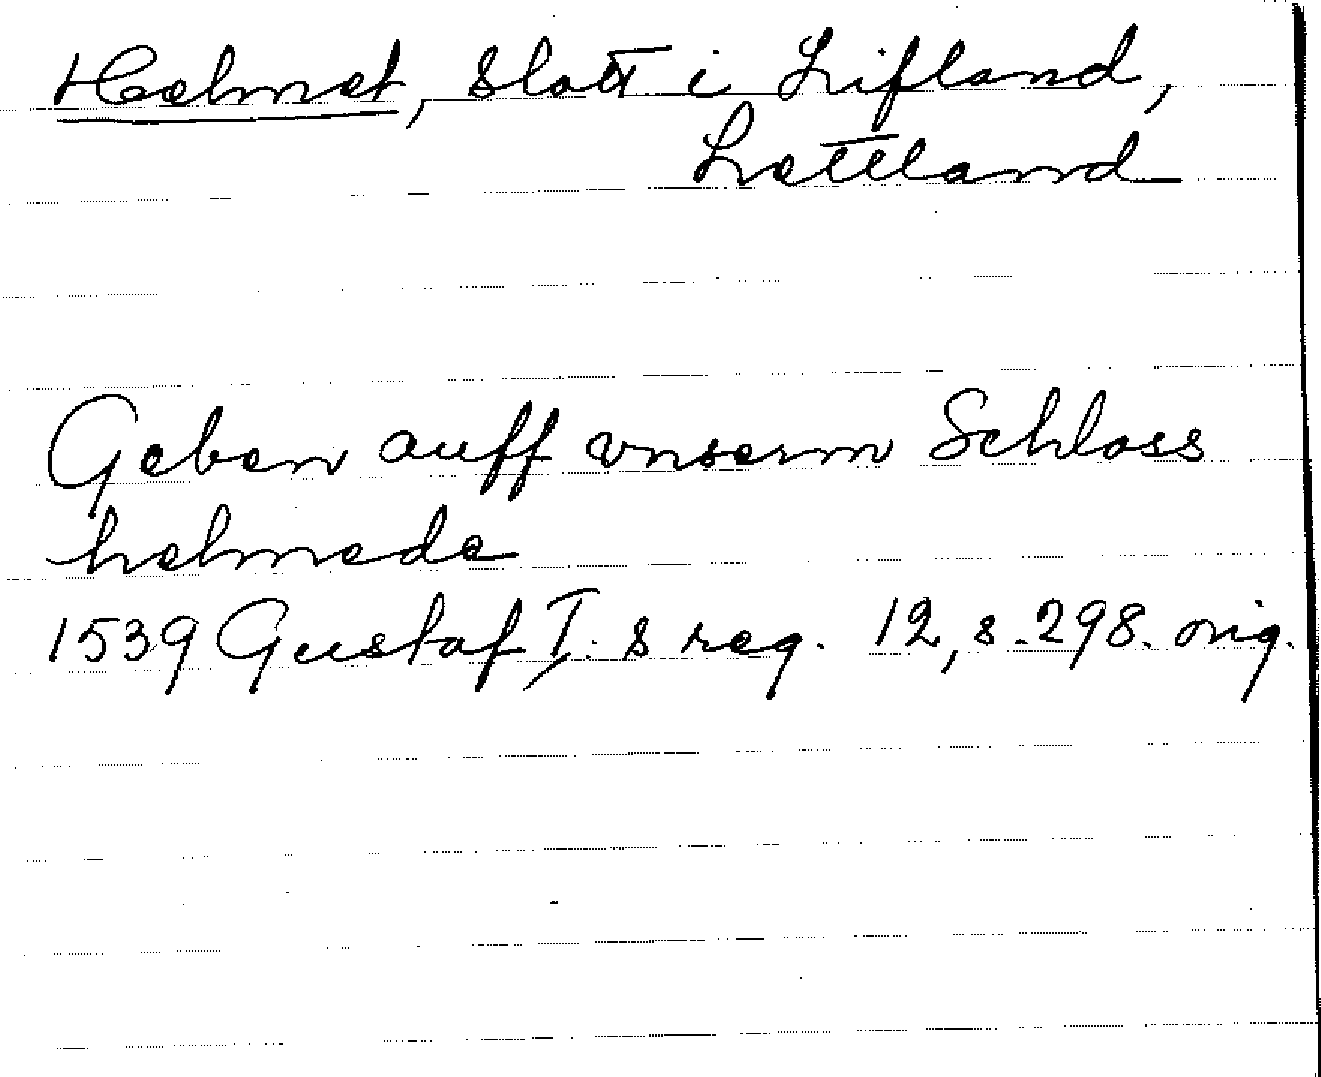 Helmet, slott i Lifland,
Lettland
Geben auff vnserm Schloss
helmede
1539 Gustaf I. s reg. 12, s. 298. orig.